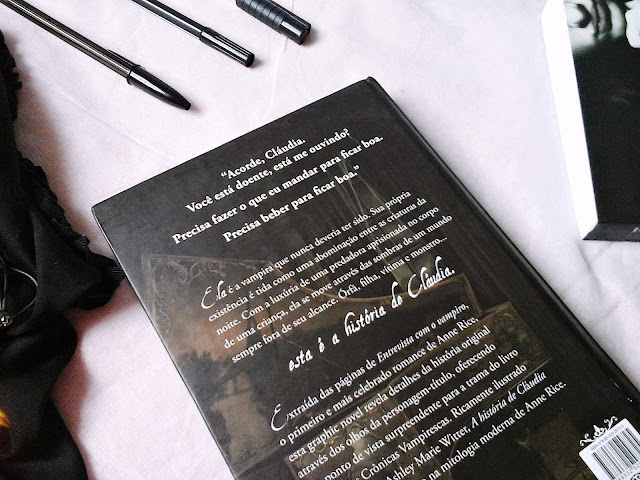 “Acorde, Cláudia.
Você está doente, está me ouvindo?
Precisa fazer o que eu mandar para ficar boa.
Precisa beber para ficar boa.”
Ela é a vampira que nunca deveria ter sido. Sua própria
existência é vista como uma abominação entre as criaturas da
noite. Com a luxúria de uma predadora aprisionada no corpo
de uma criança, ela se move através das sombras de um mundo
sempre fora de seu alcance. Órfã, filha, vítima e monstro...
esta é a história de Cláudia.
Extraída das páginas de Entrevista com o vampiro,
o primeiro e mais celebrado romance de Anne Rice,
esta graphic novel revela detalhes da história original
através dos olhos da personagem-título, oferecendo
ponto de vista surpreendente para a trama do livro
Crônicas Vampirescas. Ricamente ilustrado
Ashley Marie Witter, A história de Cláudia
na mitologia moderna de Anne Rice.